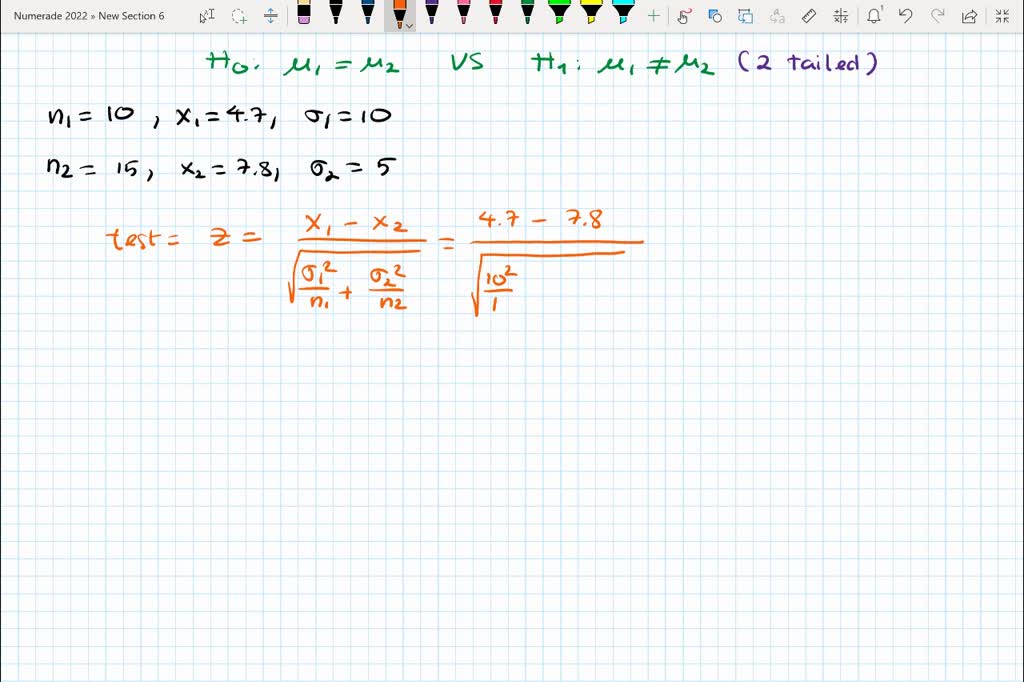 Numerade 2022 » New Section 6
H₀: μ₁ = μ₂ VS H₁: μ₁ ≠ μ₂ (2 tailed)
n₁ = 10 , x₁ = 4.7, σ₁ = 10
n₂ = 15, x₂ = 7.8, σ₂ = 5
test = z = (x₁ - x₂) / √(σ₁²/n₁ + σ₂²/n₂) = (4.7 - 7.8) / √(10²/1